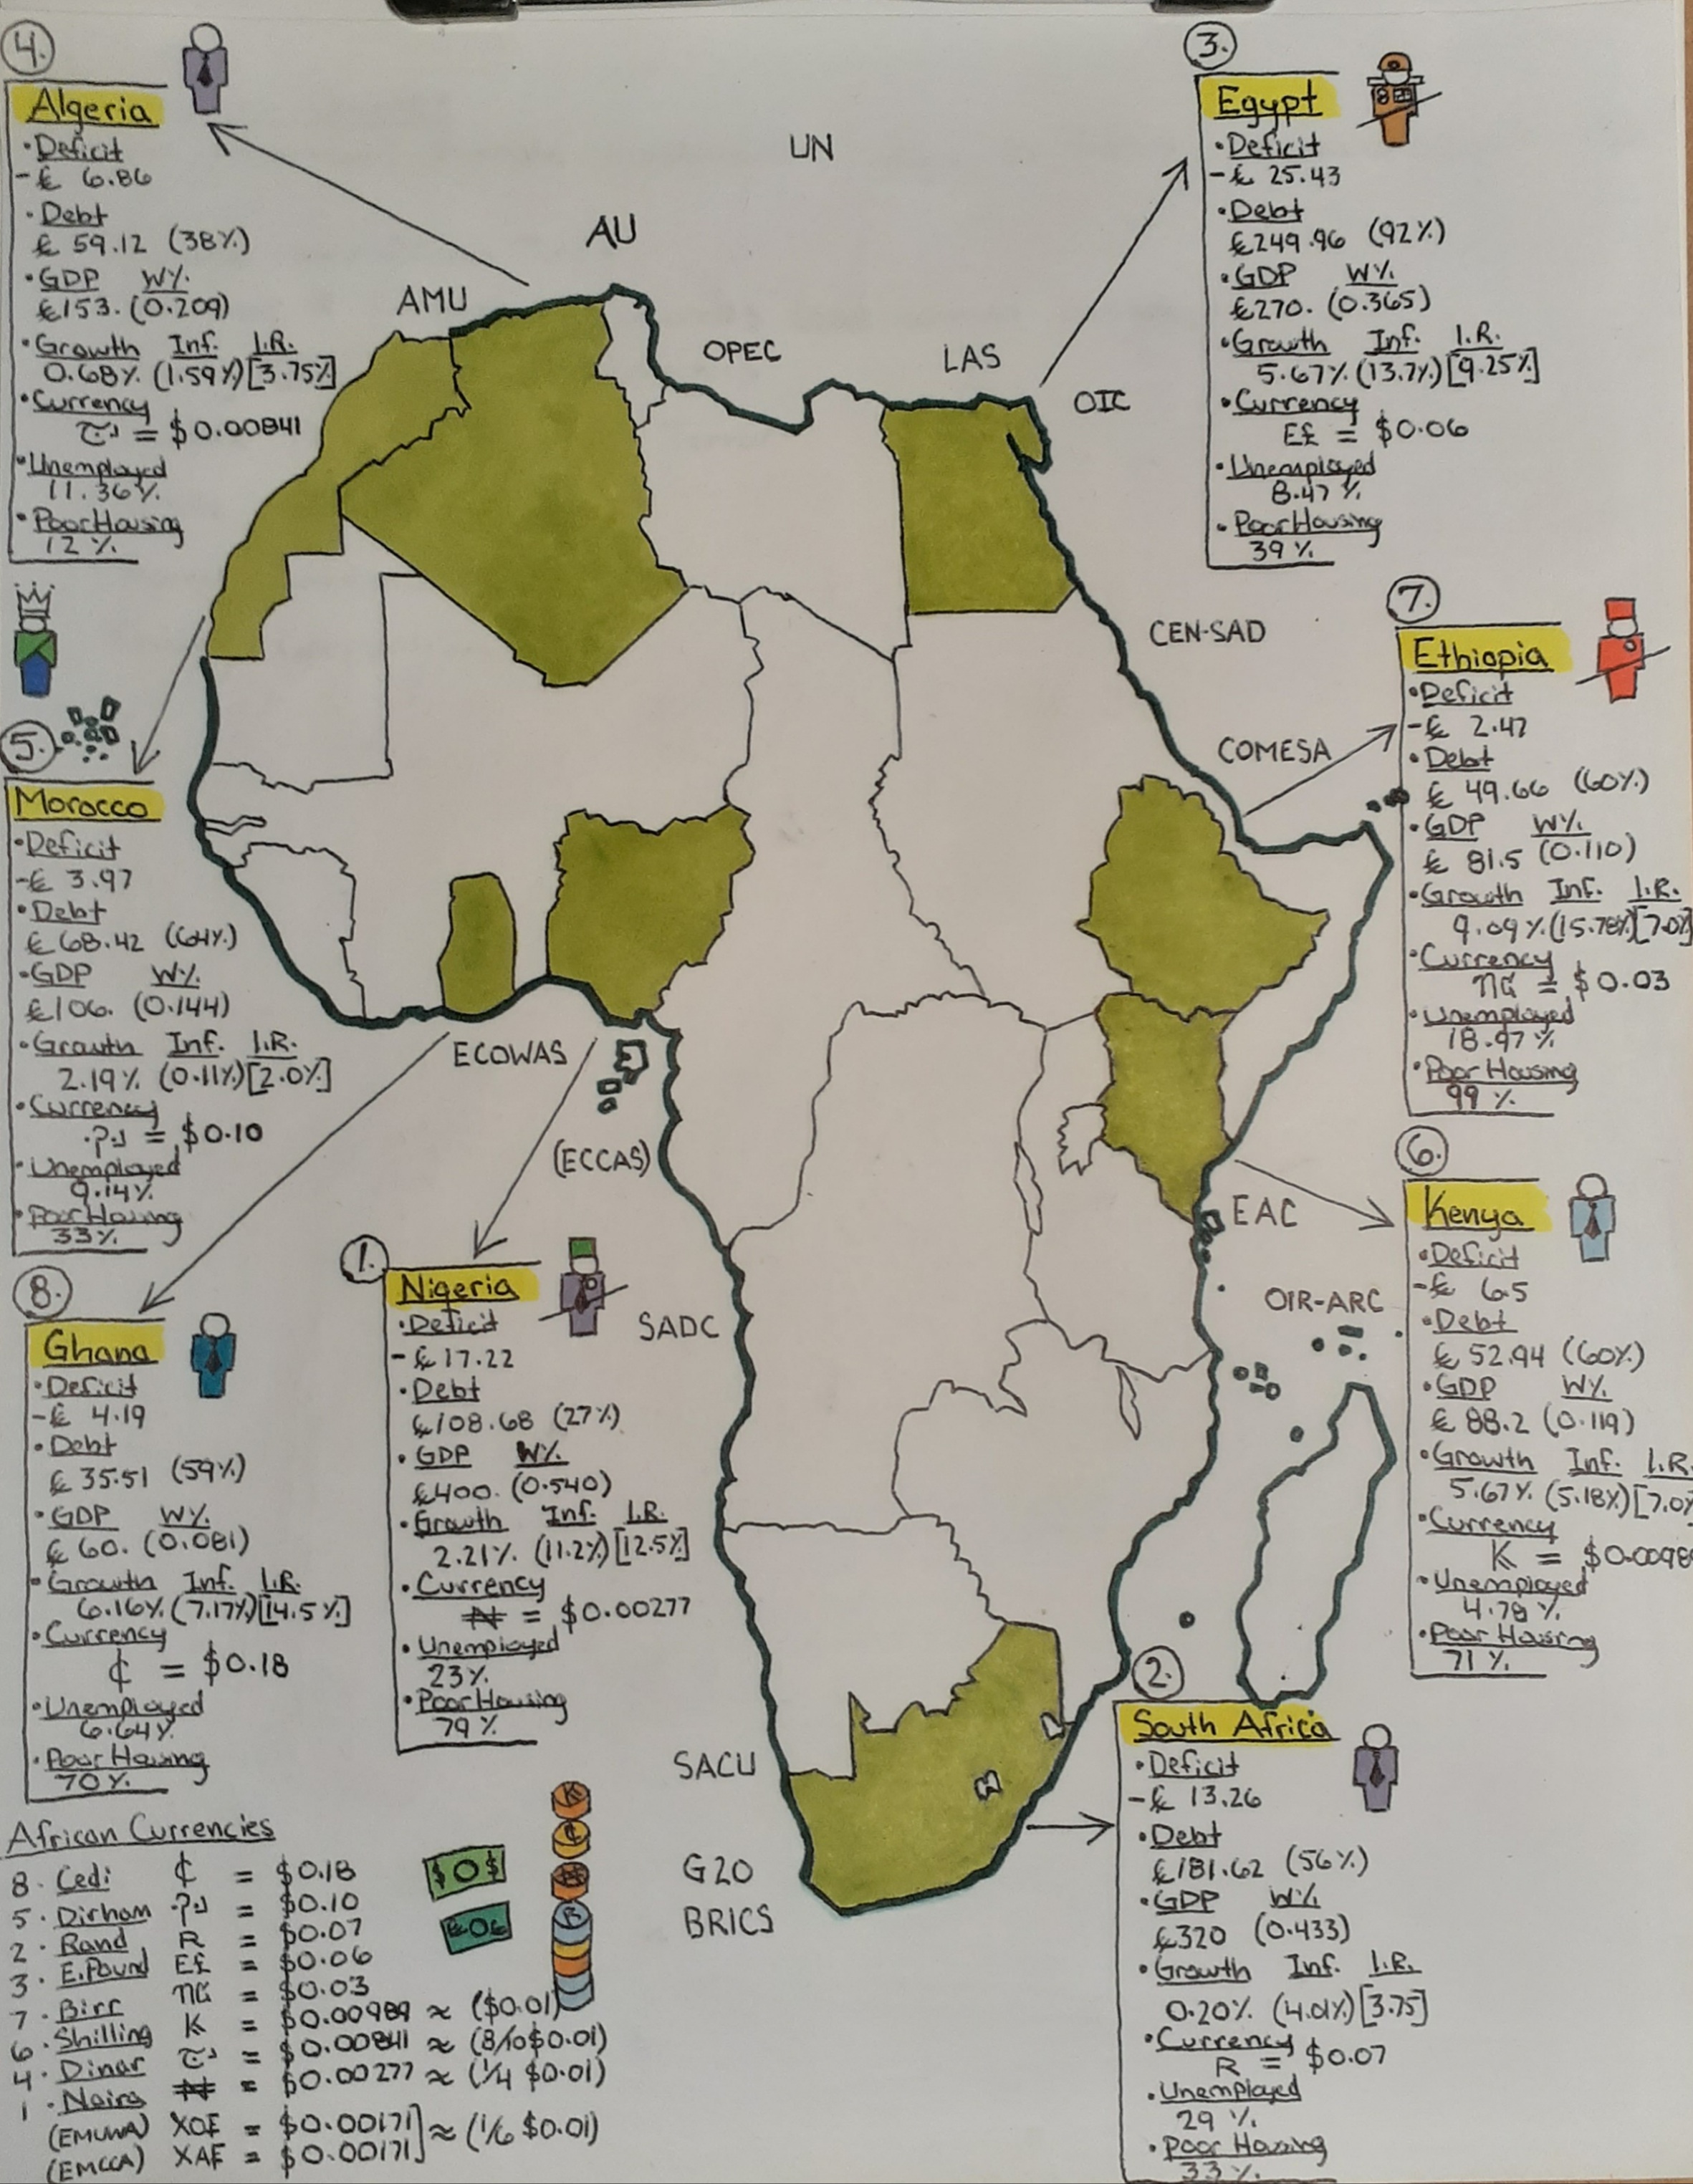 4.
Algeria
• Deficit
- £ 6.86
• Debt
£ 59.12 (38%)
• GDP W%
£153. (0.209)
• Growth Inf. I.R.
0.68% (1.59%) [3.75%]
• Currency
دج = $0.00841
• Unemployed
11.36%
• Poor Housing
12%
UN
AU
AMU
OPEC
LAS
OIC
3.
Egypt
• Deficit
- £ 25.43
• Debt
£249.96 (92%)
• GDP W%
£270. (0.365)
• Growth Inf. I.R.
5.67% (13.7%) [9.25%]
• Currency
E£ = $0.06
• Unemployed
8.47%
• Poor Housing
39%
CEN-SAD
COMESA
7.
Ethiopia
• Deficit
- £ 2.47
• Debt
£ 49.66 (60%)
• GDP W%
£ 81.5 (0.110)
• Growth Inf. I.R.
9.09% (15.78%) [7.0%]
• Currency
= $0.03
• Unemployed
18.97%
• Poor Housing
99%
5.
Morocco
• Deficit
- £ 3.97
• Debt
£ 68.42 (64%)
• GDP W%
£106. (0.144)
• Growth Inf. I.R.
2.19% (0.11%) [2.0%]
• Currency
= $0.10
• Unemployed
9.14%
• Poor Housing
33%
ECOWAS
(ECCAS)
EAC
OIR-ARC
SADC
6.
Kenya
• Deficit
- £ 6.5
• Debt
£ 52.94 (60%)
• GDP W%
£ 88.2 (0.119)
• Growth Inf. I.R.
5.67% (5.18%) [7.0%
• Currency
K = $0.0098
• Unemployed
4.78%
• Poor Housing
71%
8.
Ghana
• Deficit
- £ 4.19
• Debt
£ 35.51 (59%)
• GDP W%
£ 60. (0.081)
• Growth Inf. I.R.
6.16% (7.17%) [14.5%]
• Currency
₵ = $0.18
• Unemployed
6.64%
• Poor Housing
70%
1.
Nigeria
• Deficit
- £ 17.22
• Debt
£108.68 (27%)
• GDP W%
£400. (0.540)
• Growth Inf. I.R.
2.21% (11.2%) [12.5%]
• Currency
₦ = $0.00277
• Unemployed
23%
• Poor Housing
79%
2.
South Africa
• Deficit
- £ 13.26
• Debt
£181.62 (56%)
• GDP W%
£320 (0.433)
• Growth Inf. I.R.
0.20% (4.01%) [3.75]
• Currency
R = $0.07
• Unemployed
29%
• Poor Housing
33%
SACU
G20
BRICS
African Currencies
8. Cedi ₵ = $0.18
5. Dirham = $0.10
2. Rand R = $0.07
3. E.Pound E£ = $0.06
7. Birr = $0.03
6. Shilling K = $0.00989 ≈ ($0.01)
4. Dinar دج = $0.00841 ≈ (8/10 $0.01)
1. Naira ₦ = $0.00277 ≈ (1/4 $0.01)
(EMUWA) XOF = $0.00171
(EMCCA) XAF = $0.00171] ≈ (1/6 $0.01)
$0$
£0£
K
₵
₦
R